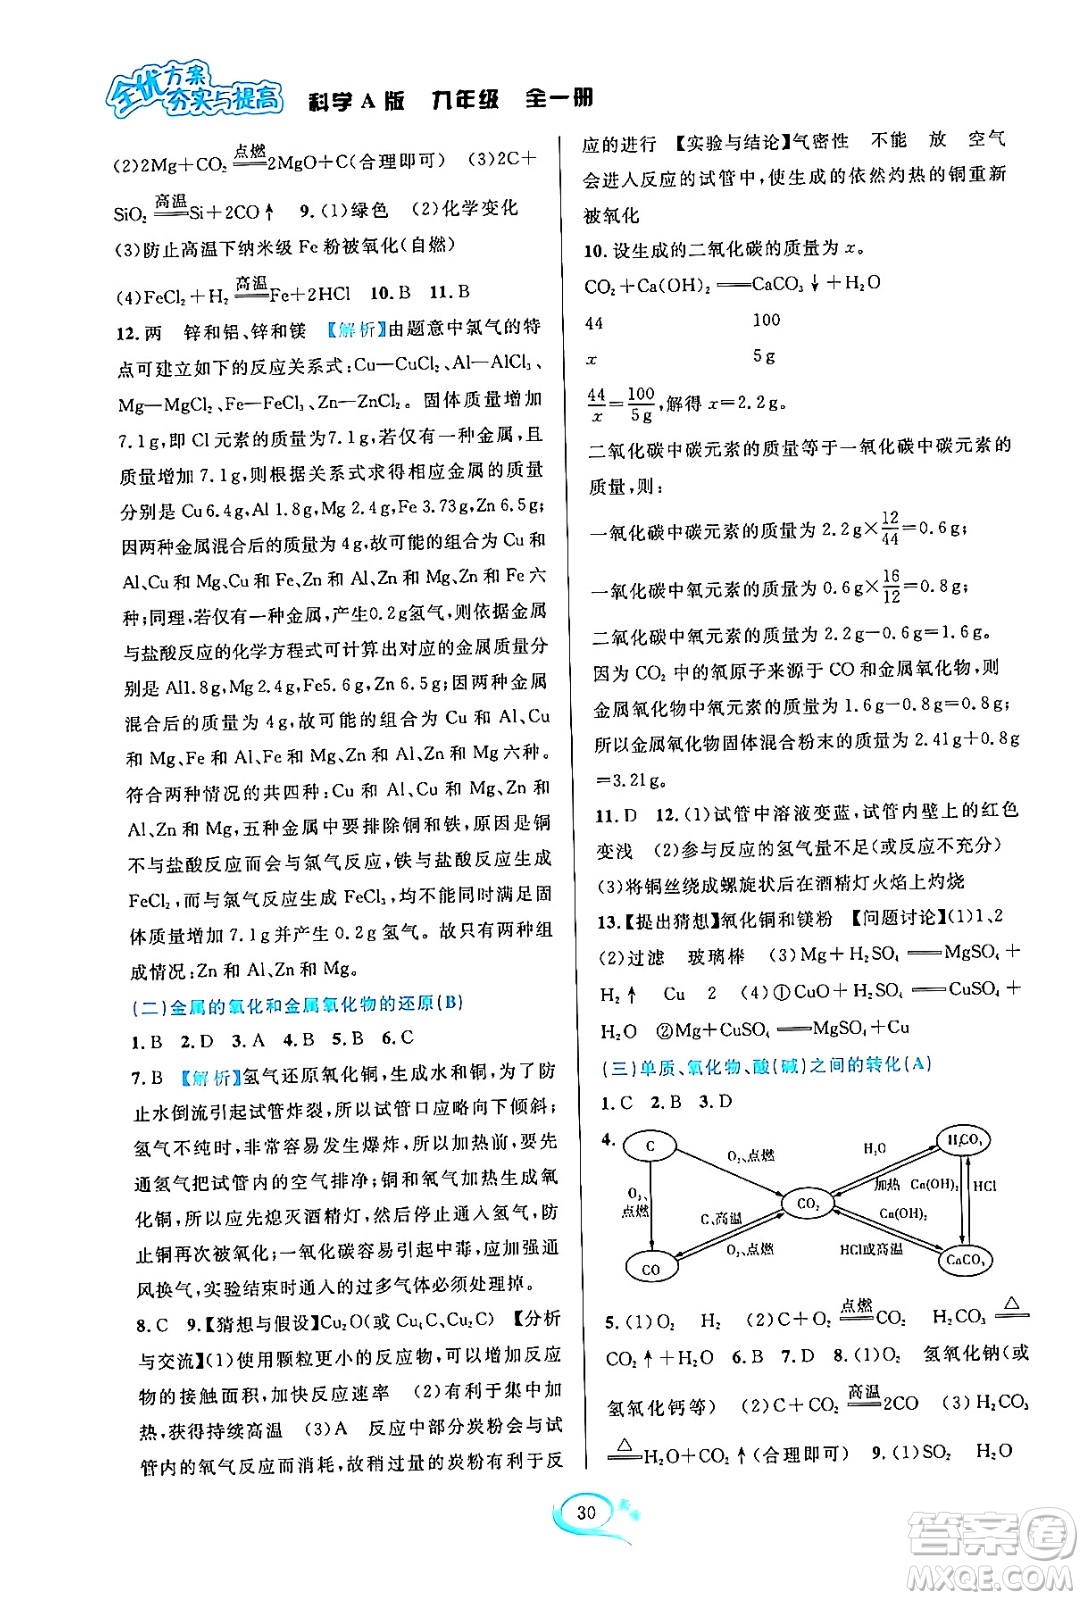 全优方案
夯实与提高 科学A版 九年级 全一册
(2)2Mg+CO₂ 点燃══ 2MgO+C(合理即可) (3)2C+
SiO₂ 高温══ Si+2CO↑ 9.(1)绿色 (2)化学变化
(3)防止高温下纳米级Fe粉被氧化(自燃)
(4)FeCl₂+H₂ 高温══ Fe+2HCl 10.B 11.B
12.两 锌和铝、锌和镁 【解析】由题意中氯气的特
点可建立如下的反应关系式:Cu—CuCl₂、Al—AlCl₃、
Mg—MgCl₂、Fe—FeCl₃、Zn—ZnCl₂。固体质量增加
7.1g,即Cl元素的质量为7.1g,若仅有一种金属,且
质量增加7.1g,则根据关系式求得相应金属的质量
分别是Cu 6.4g,Al 1.8g,Mg 2.4g,Fe 3.73g,Zn 6.5g;
因两种金属混合后的质量为4g,故可能的组合为Cu和
Al、Cu和Mg、Cu和Fe、Zn和Al、Zn和Mg、Zn和Fe六
种;同理,若仅有一种金属,产生0.2g氢气,则依据金属
与盐酸反应的化学方程式可计算出对应的金属质量分
别是Al1.8g,Mg2.4g,Fe5.6g,Zn6.5g;因两种金属
混合后的质量为4g,故可能的组合为Cu和Al、Cu
和Mg、Fe和Al、Fe和Mg、Zn和Al、Zn和Mg六种。
符合两种情况的共四种:Cu和Al、Cu和Mg、Zn和
Al、Zn和Mg,五种金属中要排除铜和铁,原因是铜
不与盐酸反应而会与氯气反应,铁与盐酸反应生成
FeCl₂,而与氯气反应生成FeCl₃,也不能同时满足固
体质量增加7.1g并产生0.2g氢气。故只有两种组
成情况:Zn和Al、Zn和Mg。
(二)金属的氧化和金属氧化物的还原(B)
1.B 2.D 3.A 4.B 5.B 6.C
7.B 【解析】氢气还原氧化铜,生成水和铜,为了防
止水倒流引起试管炸裂,所以试管口应略向下倾斜;
氢气不纯时,非常容易发生爆炸,所以加热前,要先
通氢气把试管内的空气排净;铜和氧气加热生成氧
化铜,所以应先熄灭酒精灯,后停止通入氢气,以
防止铜再次被氧化;一氧化碳容易引起中毒,应该通
风换气,实验结束时通入的过多气体必须处理掉。
8.C 9.【猜想与假设】Cu₂O(或Cu、C、Cu₂C) 【分析
与交流】(1)使用颗粒更小的反应物,增大反应
物的接触面积,加快反应速率 (2)有利于集中加
热,获得持续高温 (3)A 反应中部分炭粉会与试
管内的氧气反应而消耗,故稍过量的炭粉有利于反
应的进行 【实验与结论】气密性 不能 放 空气
会进入反应的试管中,使生成的依然灼热的铜重新
被氧化
10.设生成的二氧化碳的质量为x。
CO₂+Ca(OH)₂══CaCO₃↓+H₂O
44 100
x 5g
44/x=100/5g,解得x=2.2g。
二氧化碳中碳元素的质量等于一氧化碳中碳元素的
质量,则:
一氧化碳中碳元素的质量为2.2g×12/44=0.6g;
一氧化碳中氧元素的质量为0.6g×16/12=0.8g;
二氧化碳中氧元素的质量为2.2g-0.6g=1.6g。
因为CO₂中的氧原子来源于CO和金属氧化物,则
金属氧化物中氧元素的质量为1.6g-0.8g=0.8g,
所以金属氧化物固体混合粉末的质量为2.41g+0.8g
=3.21g。
11.D 12.(1)试管中溶液变蓝,试管内壁上的红色
变浅 (2)参与反应的氢气量不足(或反应不充分)
(3)将铜丝绕成螺旋状后在酒精灯火焰上灼烧
13.【提出猜想】氧化铜和镁粉 【问题讨论】(1)1、2
(2)过滤 玻璃棒 (3)Mg+H₂SO₄══MgSO₄+
H₂↑ Cu 2 (4)①CuO+H₂SO₄══CuSO₄+
H₂O ②Mg+CuSO₄══MgSO₄+Cu
(三)单质、氧化物、酸(碱)之间的转化(A)
1.C 2.B 3.D
4. C H₂CO₃
O₂、点燃 H₂O
加热 Ca(OH)₂ HCl
O₂、
点燃 C、高温 CO₂ Ca(OH)₂
O₂、点燃 HCl或高温
CO CaCO₃
5.(1)O₂ H₂ (2)C+O₂ 点燃══ CO₂ H₂CO₃ △══
CO₂↑+H₂O 6.B 7.D 8.(1)O₂ 氢氧化钠(或
氢氧化钙等) (2)C+CO₂ 高温══ 2CO H₂CO₃
△══ H₂O+CO₂↑(合理即可) 9.(1)SO₂ H₂O
30
答案卷
MXQE.COM